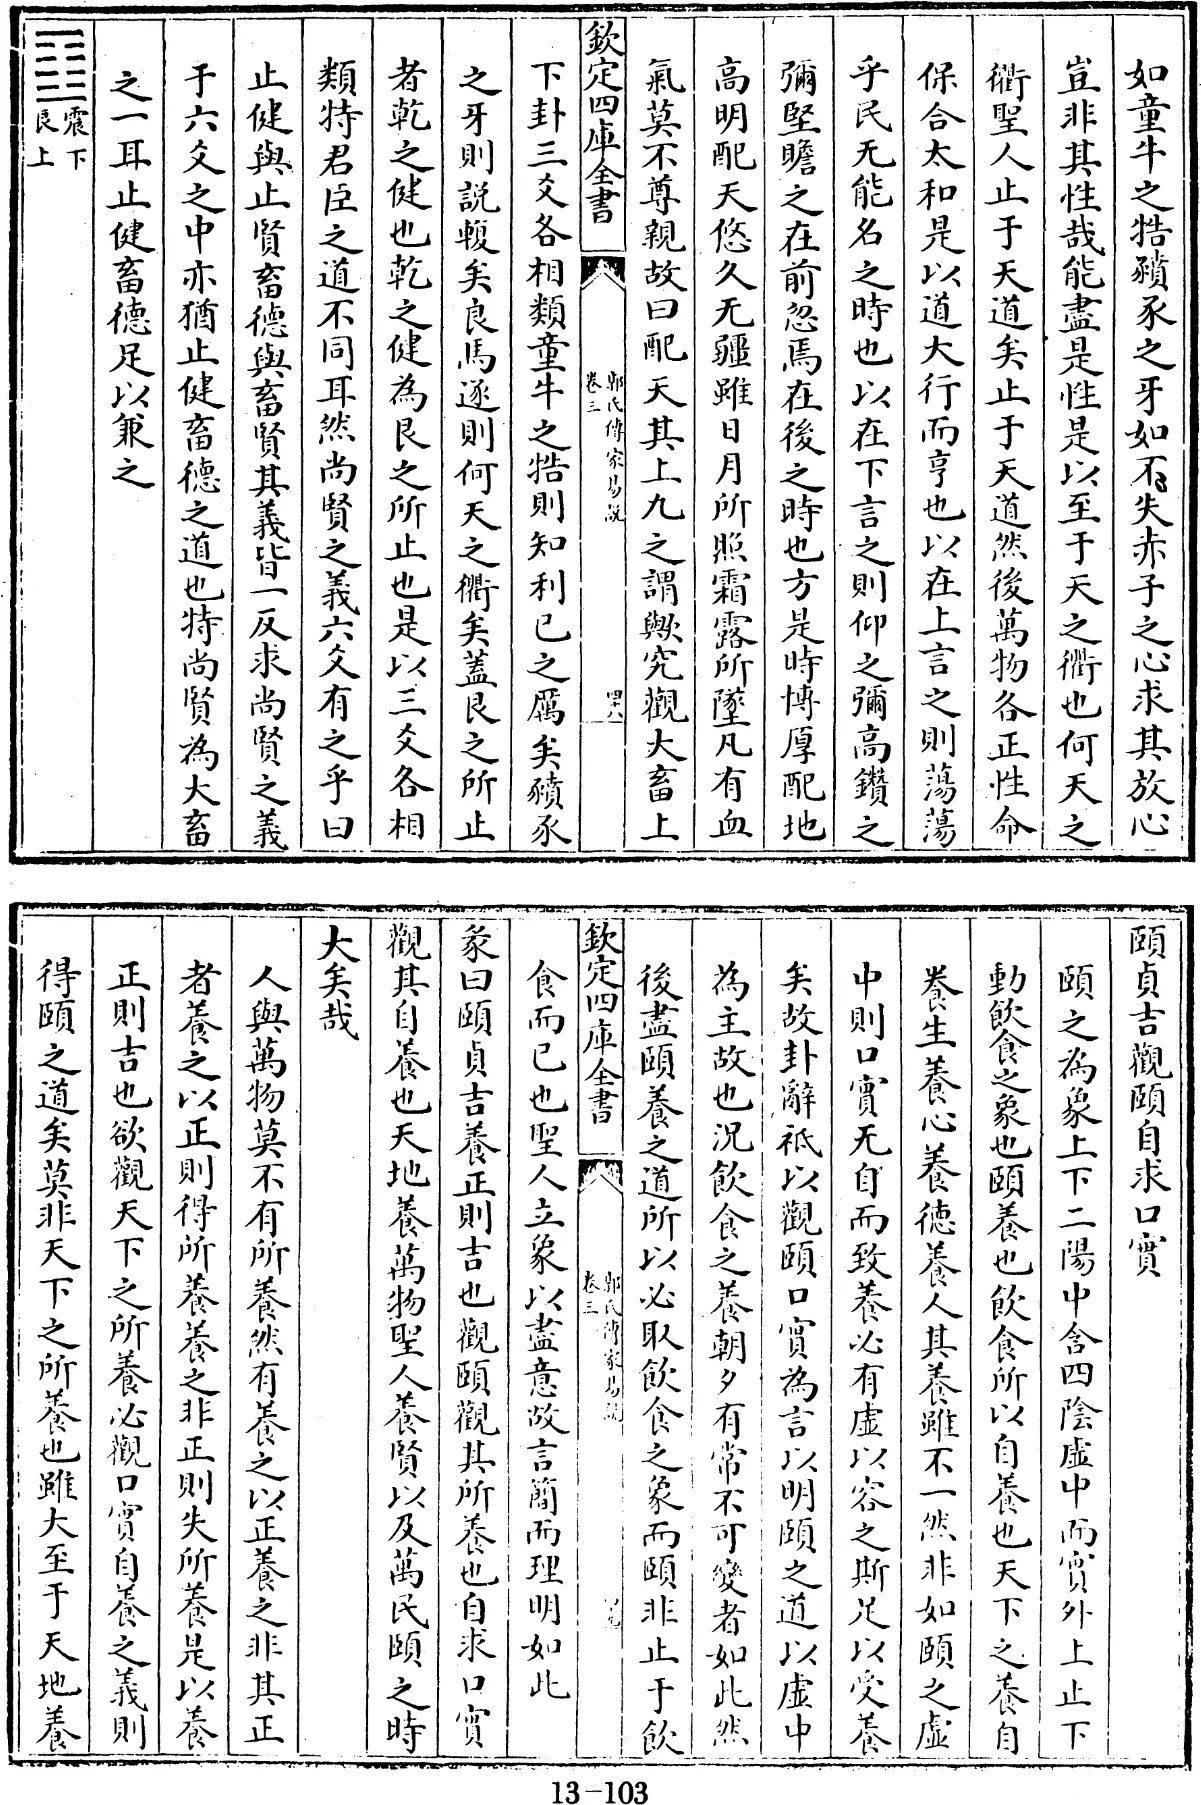 如童牛之牿豶豕之牙如不失赤子之心求其放心
豈非其性哉能盡是性是以至于天之衢也何天之
衢聖人止于天道矣止于天道然後萬物各正性命
保合太和是以道大行而亨也以在上言之則蕩蕩
乎民无能名之時也以在下言之則仰之彌高鑽之
彌堅瞻之在前忽焉在後之時也方是時博厚配地
高明配天悠久无疆雖日月所照霜露所墜凡有血
氣莫不尊親故曰配天其上九之謂歟究觀大畜上
欽定四庫全書
郭氏傳家易說
卷三
四十八
下卦三爻各相類童牛之牿則知利已之厲矣豶豕
之牙則説輹矣良馬逐則何天之衢矣蓋艮之所止
者乾之健也乾之健為艮之所止也是以三爻各相
類特君臣之道不同耳然尚賢之義六爻有之乎曰
止健與止賢畜德與畜賢其義皆一反求尚賢之義
于六爻之中亦猶止健畜德之道也特尚賢為大畜
之一耳止健畜德足以兼之
䷚震下
艮上
頤貞吉觀頤自求口實
頤之為象上下二陽中含四陰虛中而實外上止下
動飲食之象也頤養也飲食所以自養也天下之養自
養生養心養德養人其養雖不一然非如頤之虛
中則口實无自而致養必有虛以容之斯足以受養
矣故卦辭祗以觀頤口實為言以明頤之道以虛中
為主故也況飲食之養朝夕有常不可變者如此然
後盡頤養之道所以必取飲食之象而頤非止于飲
欽定四庫全書
郭氏傳家易說
卷三
食而已也聖人立象以盡意故言簡而理明如此
彖曰頤貞吉養正則吉也觀頤觀其所養也自求口實
觀其自養也天地養萬物聖人養賢以及萬民頤之時
大矣哉
人與萬物莫不有所養然有養之以正養之非其正
者養之以正則得所養養之非正則失所養是以養
正則吉也欲觀天下之所養必觀口實自養之義則
得頤之道矣莫非天下之所養也雖大至于天地養
13-103